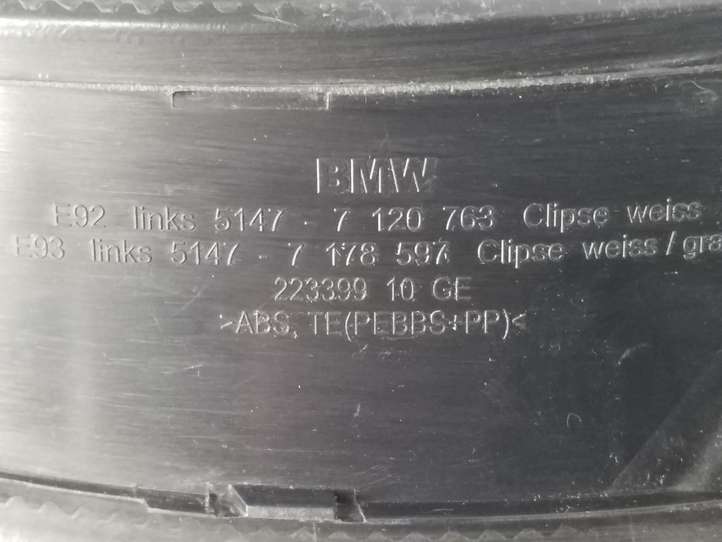 BMW
E92 links 5147 - 7 120 763 Clipse weiss
E93 links 5147 - 7 178 597 Clipse weiss / gra
223399 10 GE
>ABS, TE(PEBBS+PP)<